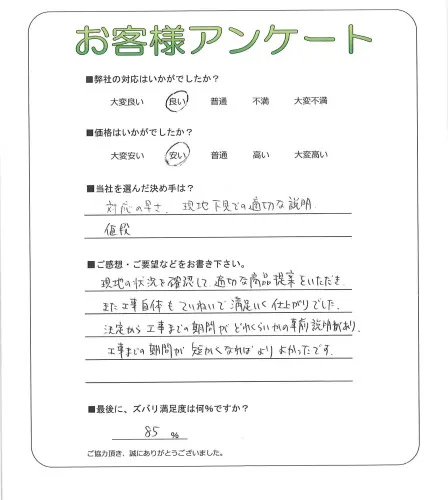 お客様アンケート
■弊社の対応はいかがでしたか？
大変良い 良い 普通 不満 大変不満
■価格はいかがでしたか？
大変安い 安い 普通 高い 大変高い
■当社を選んだ決め手は？
対応の早さ、現地下見での適切な説明
値段
■ご感想・ご要望などをお書き下さい。
現地の状況を確認して適切な商品提案をいただき、
また工事自体もていねいで満足いく仕上がりでした。
決定から工事までの期間がどれくらいかの事前説明があり、
工事までの期間が短かくなればよりよかったです。
■最後に、ズバリ満足度は何%ですか？
85 %
ご協力頂き、誠にありがとうございました。